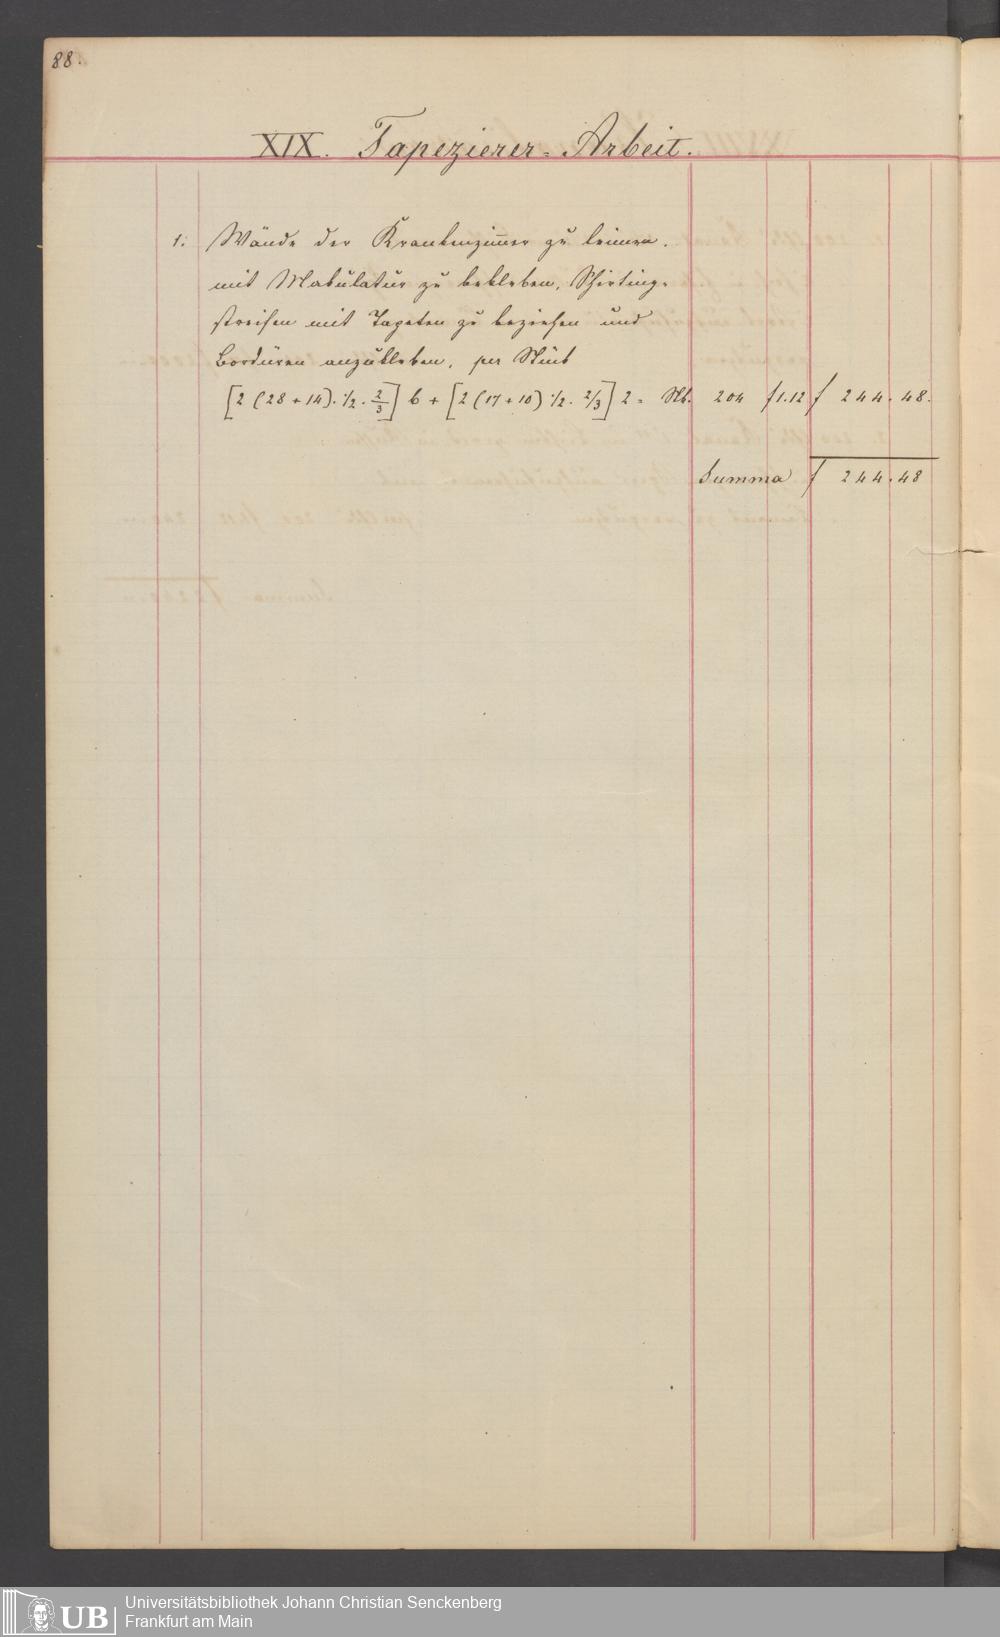 88.
XIX. Tapezierer-Arbeit.
1. Wände der Krankenzim̅er zu leimen,
mit Makulatur zu bekleben, Schirting-
streifen mit Tapeten zu beziehen und
Bordüren anzukleben, per Stück
[2 (28 + 14) · 1/2 · 2/3] 6 + [2 (17 + 10) 1/2 · 2/3] 2 = Stk. 204 f 1.12 f 244.48.
Summa f 244.48
UB Universitätsbibliothek Johann Christian Senckenberg
Frankfurt am Main